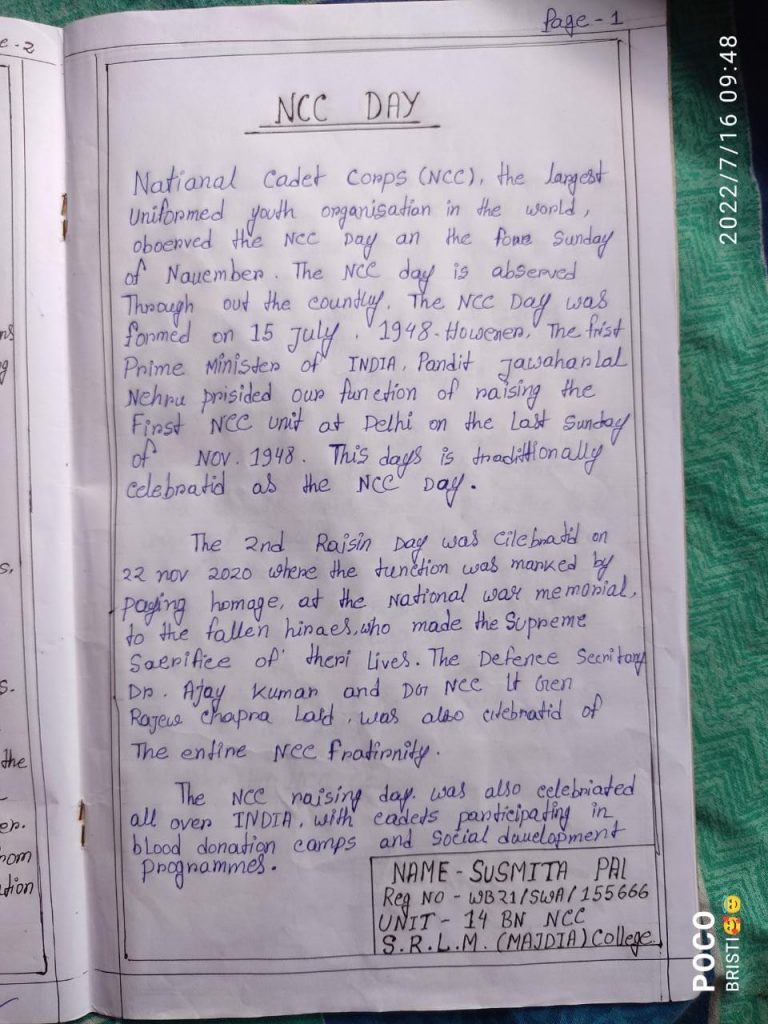 Page - 1
e - 2
NCC DAY
National Cadet Corps (NCC), the largest
Uniformed youth organisation in the world,
oboerved the NCC Day an the foue Sunday
of Nauember. The NCC day is absered
Through out the countly. The NCC Day was
formed on 15 July, 1948. Howener, The frist
Prime Minister of INDIA, Pandit Jawaharlal
Nehru prisided our function of raising the
First NCC unit at Delhi on the Last Sunday
of NOV. 1948. This days is tradittionally
celebratid as the NCC Day.
The 2nd Raisin Day was Cilebratid on
22 nov 2020 where the function was marked by
paging homage, at the National war memorial,
to the fallen hiraes, who made the Supreme
Sacrifice of theri Lives. The Defence Secritary
Dr. Ajay Kumar and DG NCC Lt Gen
Rajew Chapra Laid, was also cilebratid of
The entine NCC fratirnity.
The NCC raising day. was also celebriated
all over INDIA, with cadets participating in
blood donation camps and Social dauelopment
programmes.
NAME - SUSMITA PAL
Reg NO - WB21/SWA/155666
UNIT - 14 BN NCC
S.R.L.M. (MAJDIA) College.
s.
s.
the
er.
rom
tion
2022/7/16 09:48
POCO
BRISTI🥰😊